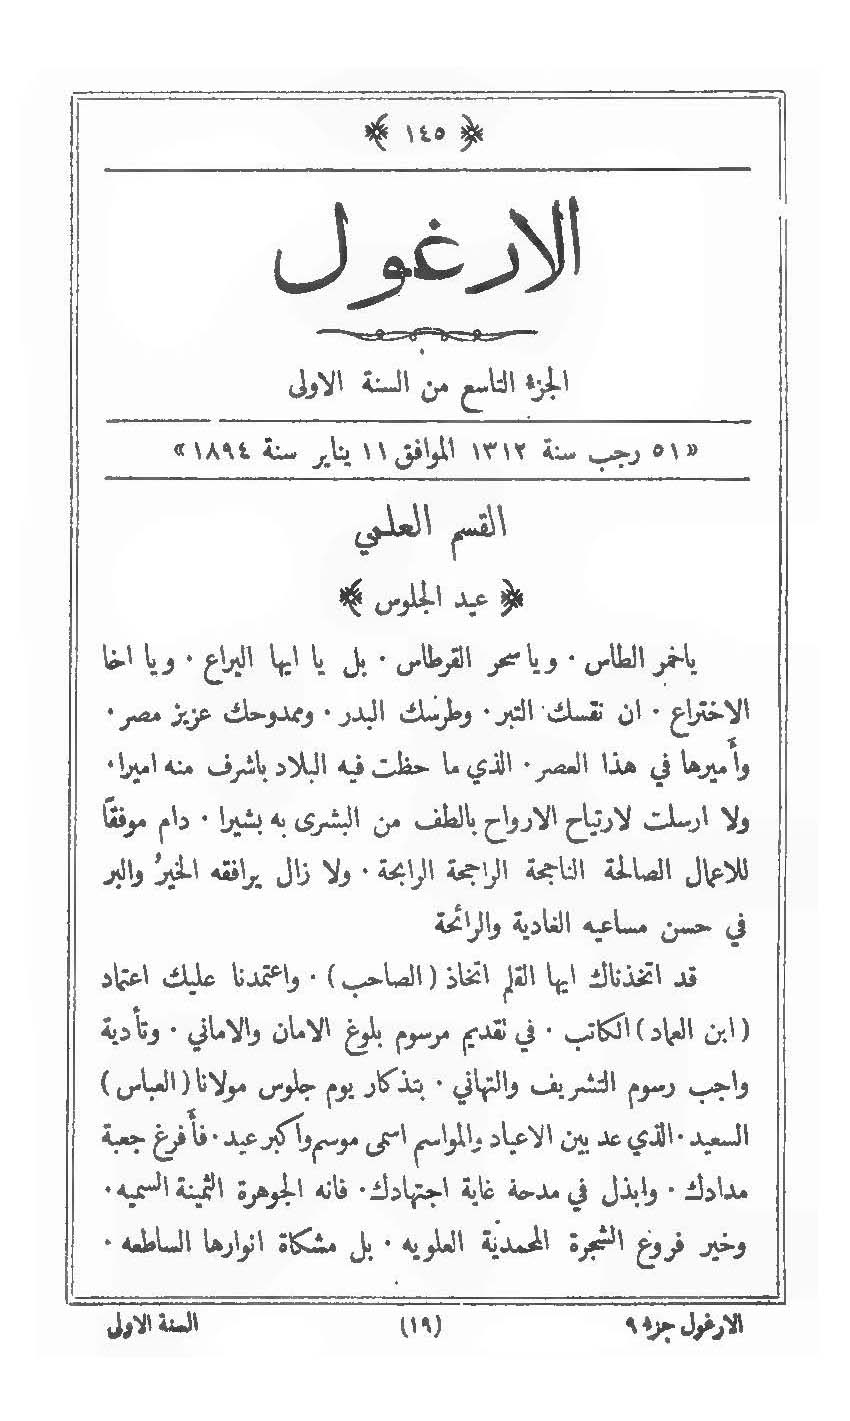 ﴿ ١٤٥ ﴾
الارغول
الجزء التاسع من السنة الاولى
«٥١ رجب سنة ١٣١٢ الموافق ١١ يناير سنة ١٨٩٤»
القسم العلمي
﴿ عيد الجلوس ﴾
ياخمر الطاس . ويا سحر القرطاس . بل يا ايها اليراع . ويا اخا
الاختراع . ان نقسك التبر . وطرسك البدر . وممدوحك عزيز مصر .
وأميرها في هذا العصر . الذي ما حظت فيه البلاد باشرف منه اميرا .
ولا ارسلت لارتياح الارواح بالطف من البشرى به بشيرا . دام موفقًا
للاعمال الصالحة الناجحة الراجحة الرابحة . ولا زال يرافقه الخيرُ والبر
في حسن مساعيه الغادية والرائحة
قد اتخذناك ايها القلم اتخاذ (الصاحب) . واعتمدنا عليك اعتماد
(ابن العماد) الكاتب . في نقديم مرسوم بلوغ الامان والاماني . وتأدية
واجب رسوم التشريف والتهاني . بتذكار يوم جلوس مولانا (العباس)
السعيد . الذي عد بين الاعياد والمواسم اسمى موسم واكبر عيد . فأفرغ جعبة
مدادك . وابذل في مدحة غاية اجتهادك . فانه الجوهرة الثمينة السميه .
وخير فروغ الشجرة المحمديّة العلويه . بل مشكاة انوارها الساطعه .
الارغول جزء ٩ (١٩) السنة الاولى